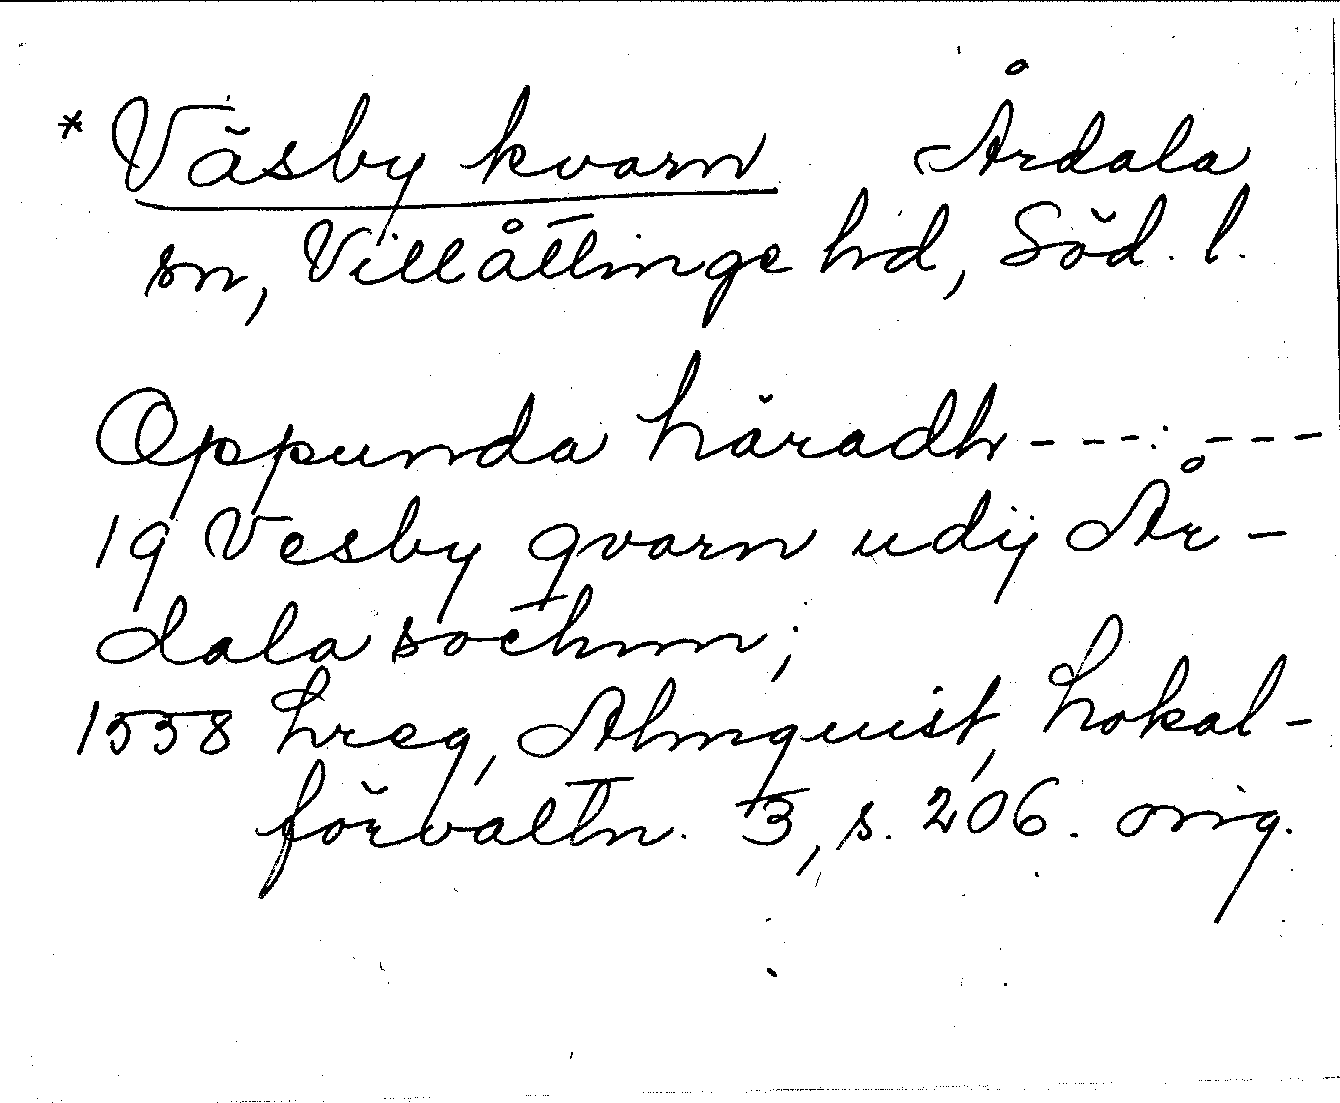 * Väsby kvarn Årdala
sn, Villåttinge hd, Söd. l.
Oppunda häradh - - - : - - -
19 Vesby qvarn udij År-
dala sochnn;
1558 hreg, Almquist, Lokal-
förvaltn. 3, s. 206. orig.